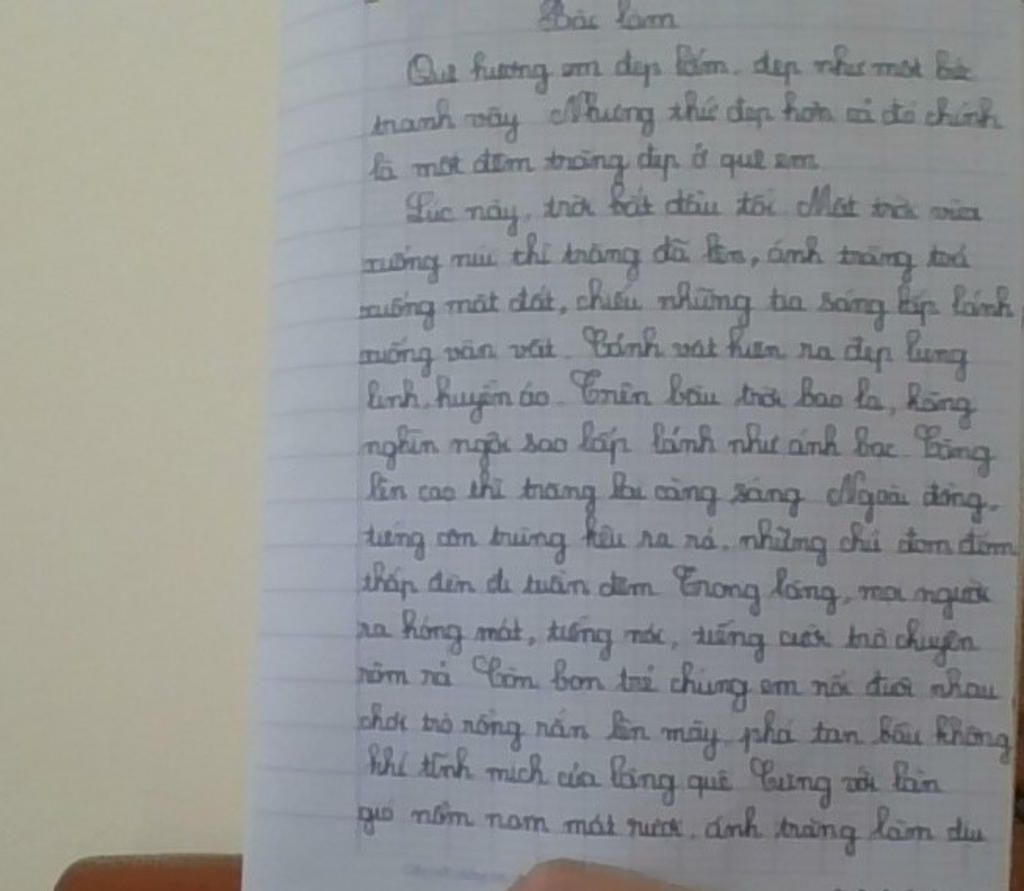 Bài làm
Quê hương em đẹp lắm, đẹp như một bức
tranh vậy. Nhưng thứ đẹp hơn cả đó chính
là một đêm trăng đẹp ở quê em.
Lúc này, trời bắt đầu tối. Mặt trời vừa
xuống núi thì trăng đã lên, ánh trăng toả
xuống mặt đất, chiếu những tia sáng lấp lánh
xuống vạn vật. Cảnh vật hiện ra đẹp lung
linh, huyền ảo. Trên bầu trời bao la, hàng
nghìn ngôi sao lấp lánh như ánh bạc. Càng
lên cao thì trăng lại càng sáng. Ngoài đồng,
tiếng côn trùng kêu ra rả, những chú đom đóm
thắp đèn đi tuần đêm. Trong làng, mọi người
ra hóng mát, tiếng nói, tiếng cười trò chuyện
rôm rả. Còn bọn trẻ chúng em nối đuôi nhau
chơi trò rồng rắn lên mây phá tan bầu không
khí tĩnh mịch của làng quê. Cùng với làn
gió nồm nam mát rượi, ánh trăng làm dịu